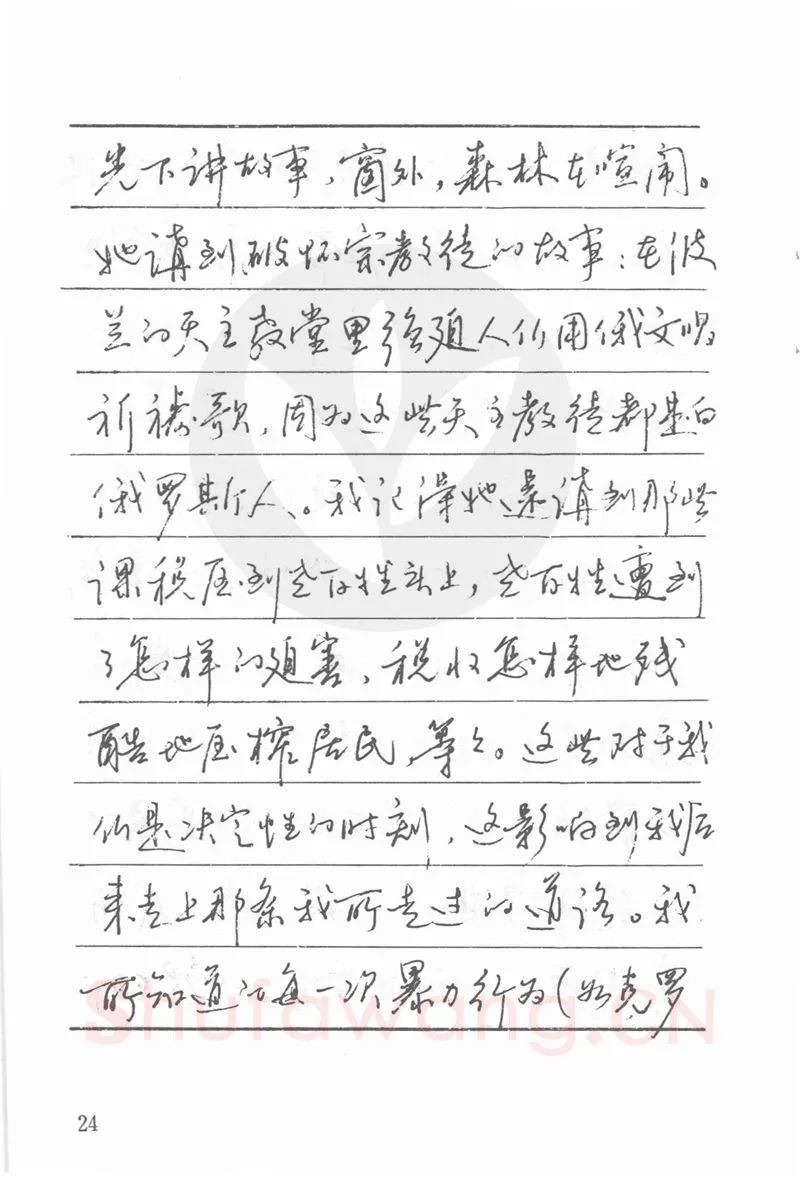 先下讲故事，窗外，森林在喧闹。
她講到破坏宗教徒的故事：在波
兰的天主教堂里强迫人们用俄文唱
祈祷歌，因为这些天主教徒都是白
俄罗斯人。我记得她还講到那些
课税压到老百姓头上，老百姓遭到
了怎样的迫害，税收怎样地残
酷地压榨居民，等等。这些对于我
们是决定性的时刻，这影响到我后
来走上那条我所走过的道路。我
所知道的每一次暴力行为（如克罗
Shufawang.CN
24